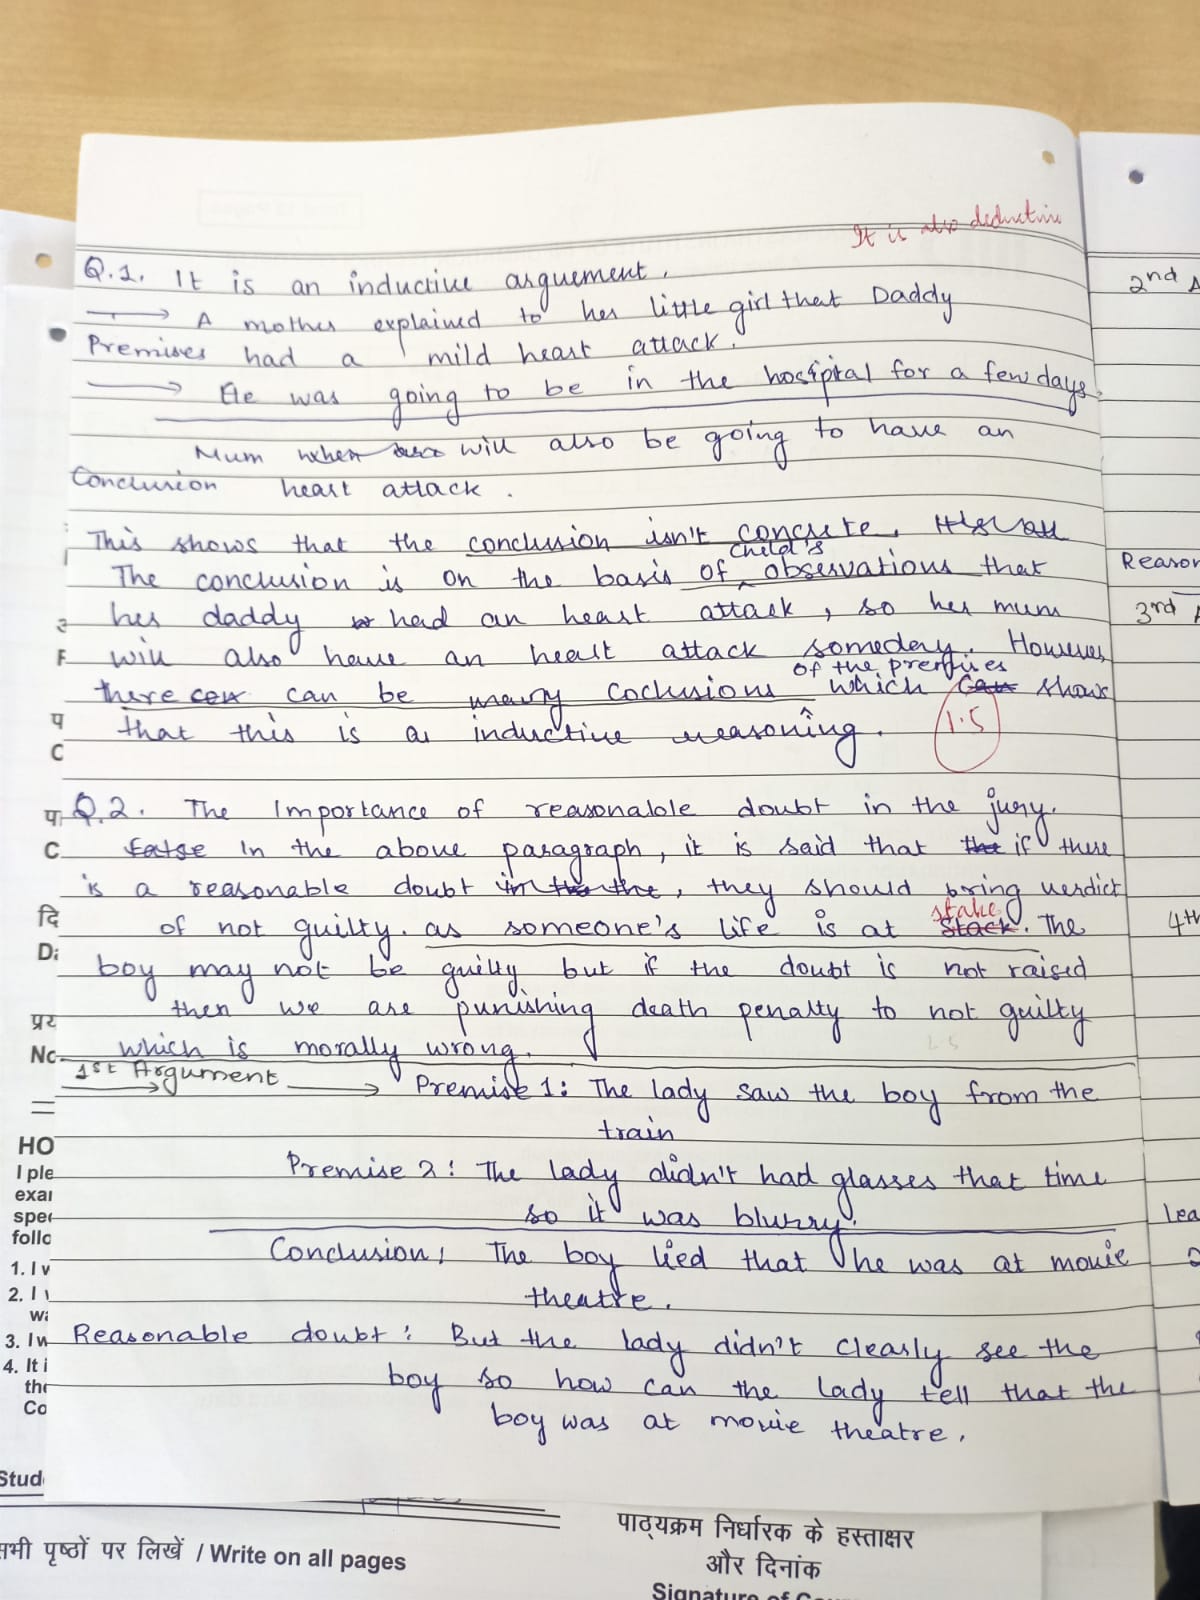 It is also deductive
Q.1. It is an inductive arguement.
→ A mother explained to her little girl that Daddy
Premises had a mild heart attack.
→ He was going to be in the hospital for a few days.
Mum when will also be going to have an
Conclusion heart attack.
This shows that the conclusion isn't concrete.
child's
The conclusion is on the basis of observations that
her daddy had an heart attack, so her mum
will also have an heart attack someday. However,
of the premises
there can be many coclusions which shows
that this is a inductive reasoning. 1.5
Q.2. The Importance of reasonable doubt in the jury.
False In the above paragraph, it is said that the if there
is a reasonable doubt in the, they should bring verdict
stake
of not guilty. as someone's life is at stack. The
boy may not be guilty but if the doubt is not raised
then we are punishing death penalty to not guilty
which is morally wrong.
1st Argument → Premise 1: The lady saw the boy from the
train
Premise 2: The lady didn't had glasses that time
so it was blurry.
Conclusion: The boy lied that he was at movie
theatre.
Reasonable doubt: But the lady didn't clearly see the
boy so how can the lady tell that the
boy was at movie theatre.
2nd A
Reason
3rd A
4th
Lea
F
प
C
C
दि
Da
प्रर
No
HO
I ple
exam
spec
follo
1. I w
2. I w
wa
3. I w
4. It i
the
Co
Stude
सभी पृष्ठों पर लिखें / Write on all pages
पाठ्यक्रम निर्धारक के हस्ताक्षर
और दिनांक
Signature of Cou